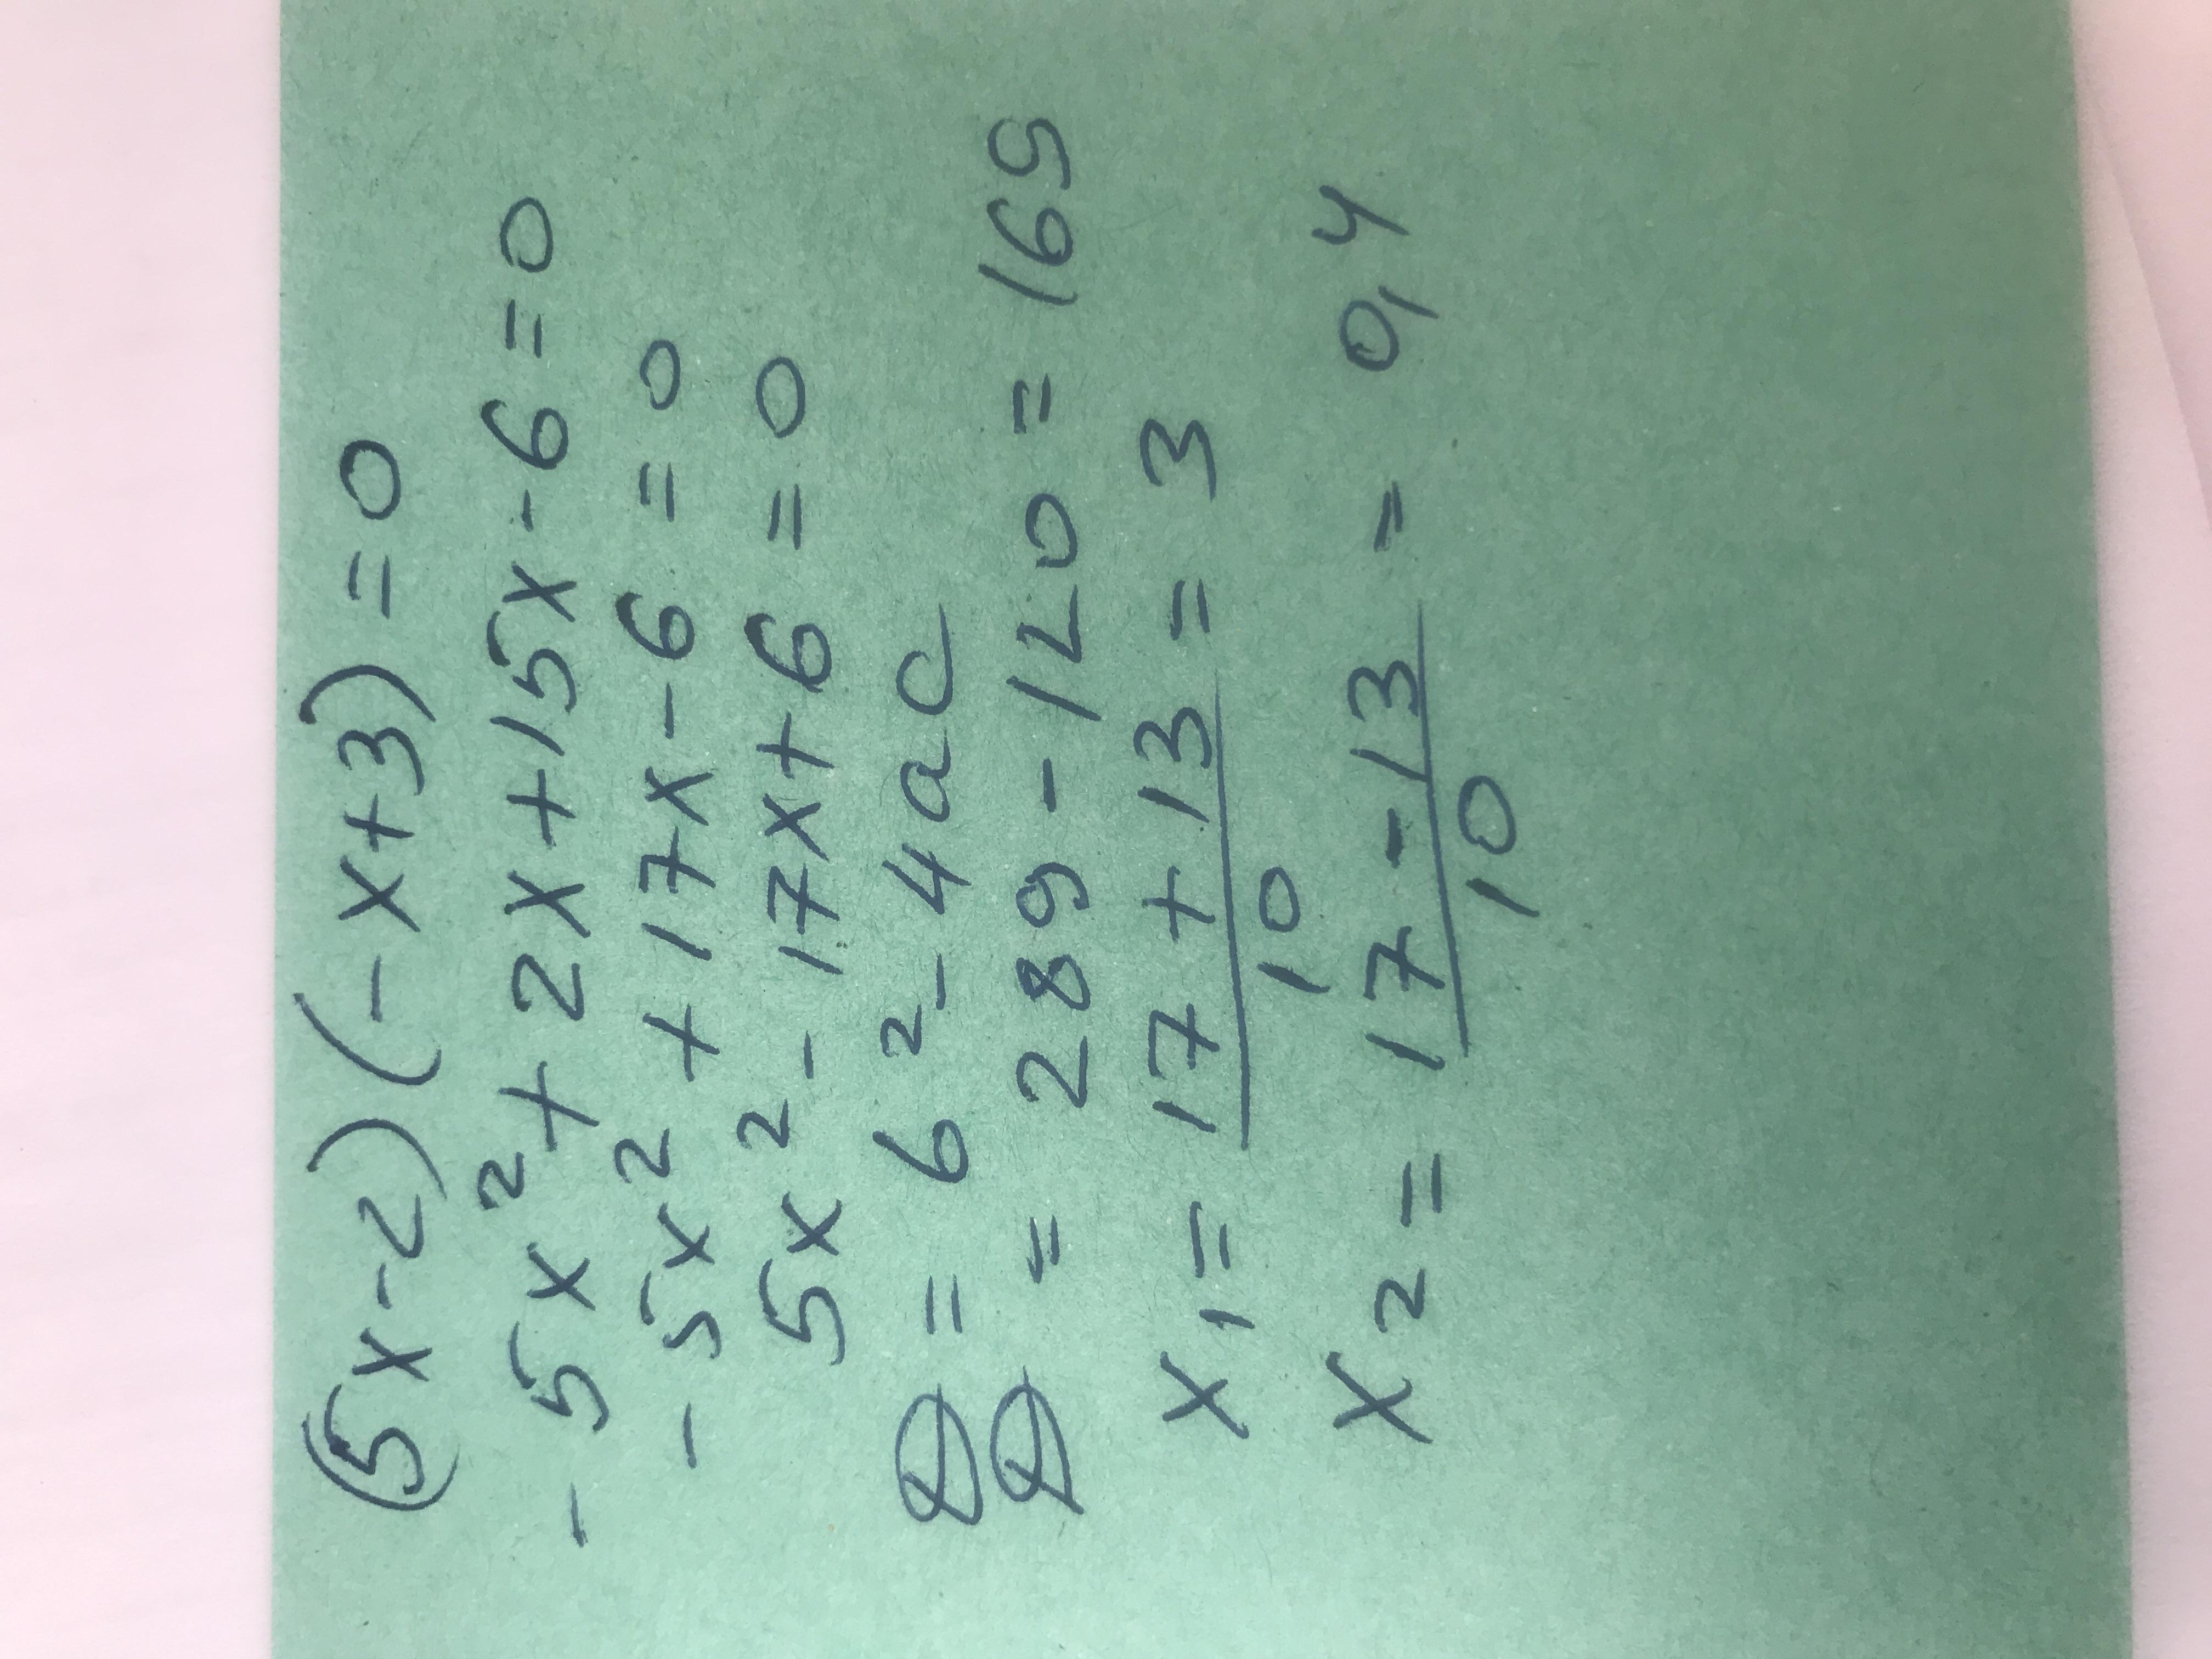 (5x-2)(-x+3)=0
-5x²+2x+15x-6=0
-5x²+17x-6=0
5x²-17x+6=0
D=b²-4ac
D=289-120=169
x₁=17+13/10=3
x₂=17-13/10=0,4